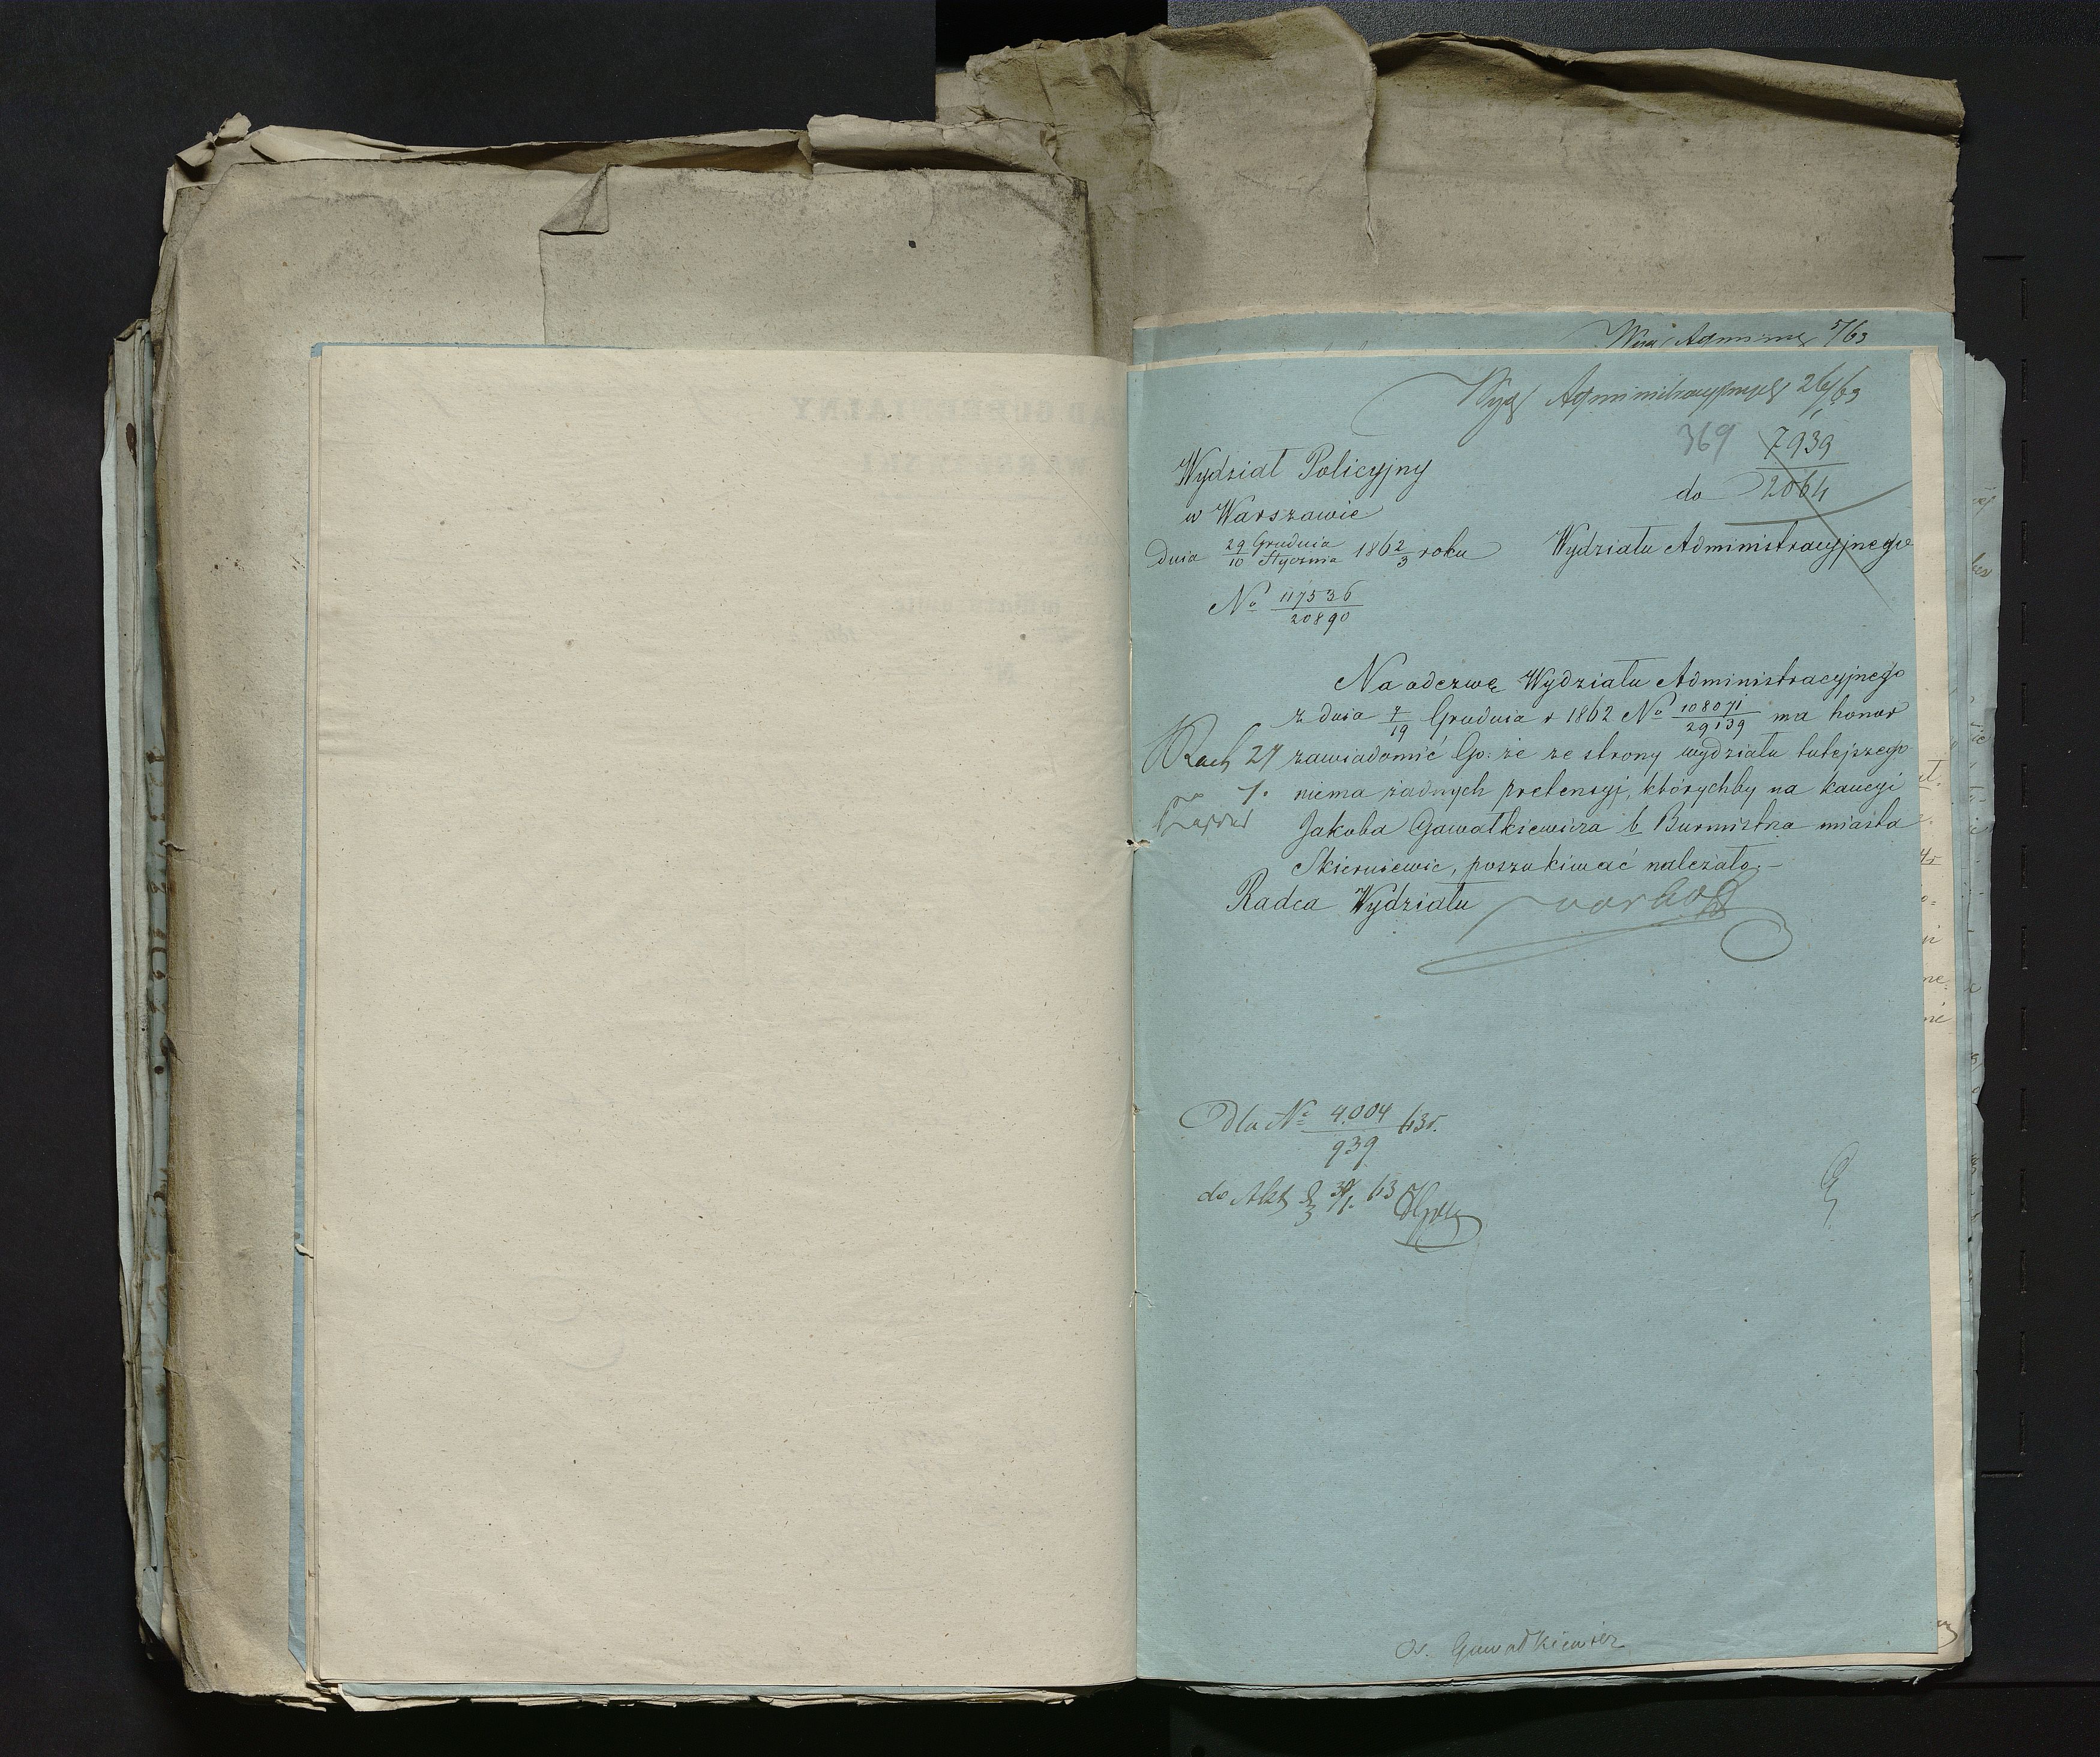 Wydz Administracyjny 26/1 63
369 7939
do 2064
Wydział Policyjny
w Warszawie
Dnia 29 Grudnia / 10 Stycznia 1862/3 roku
Wydziału Administracyjnego
No 117536 / 20890
Na odezwę Wydziału Administracyjnego
z dnia 7/19 Grudnia r 1862 No 108071 / 29139 ma honor
zawiadomić Go: że ze strony wydziału tutejszego
niema żadnych pretensyj, którychby na kaucyi
Jakóba Gawatkiewicza b. Burmistrza miasta
Skierniewic, poszukiwać należało.—
Radca Wydziału
Rach 27
1.
Dla No 4.004 / 939 63r.
do Akt 30/1. 63
Gawatkiewicz